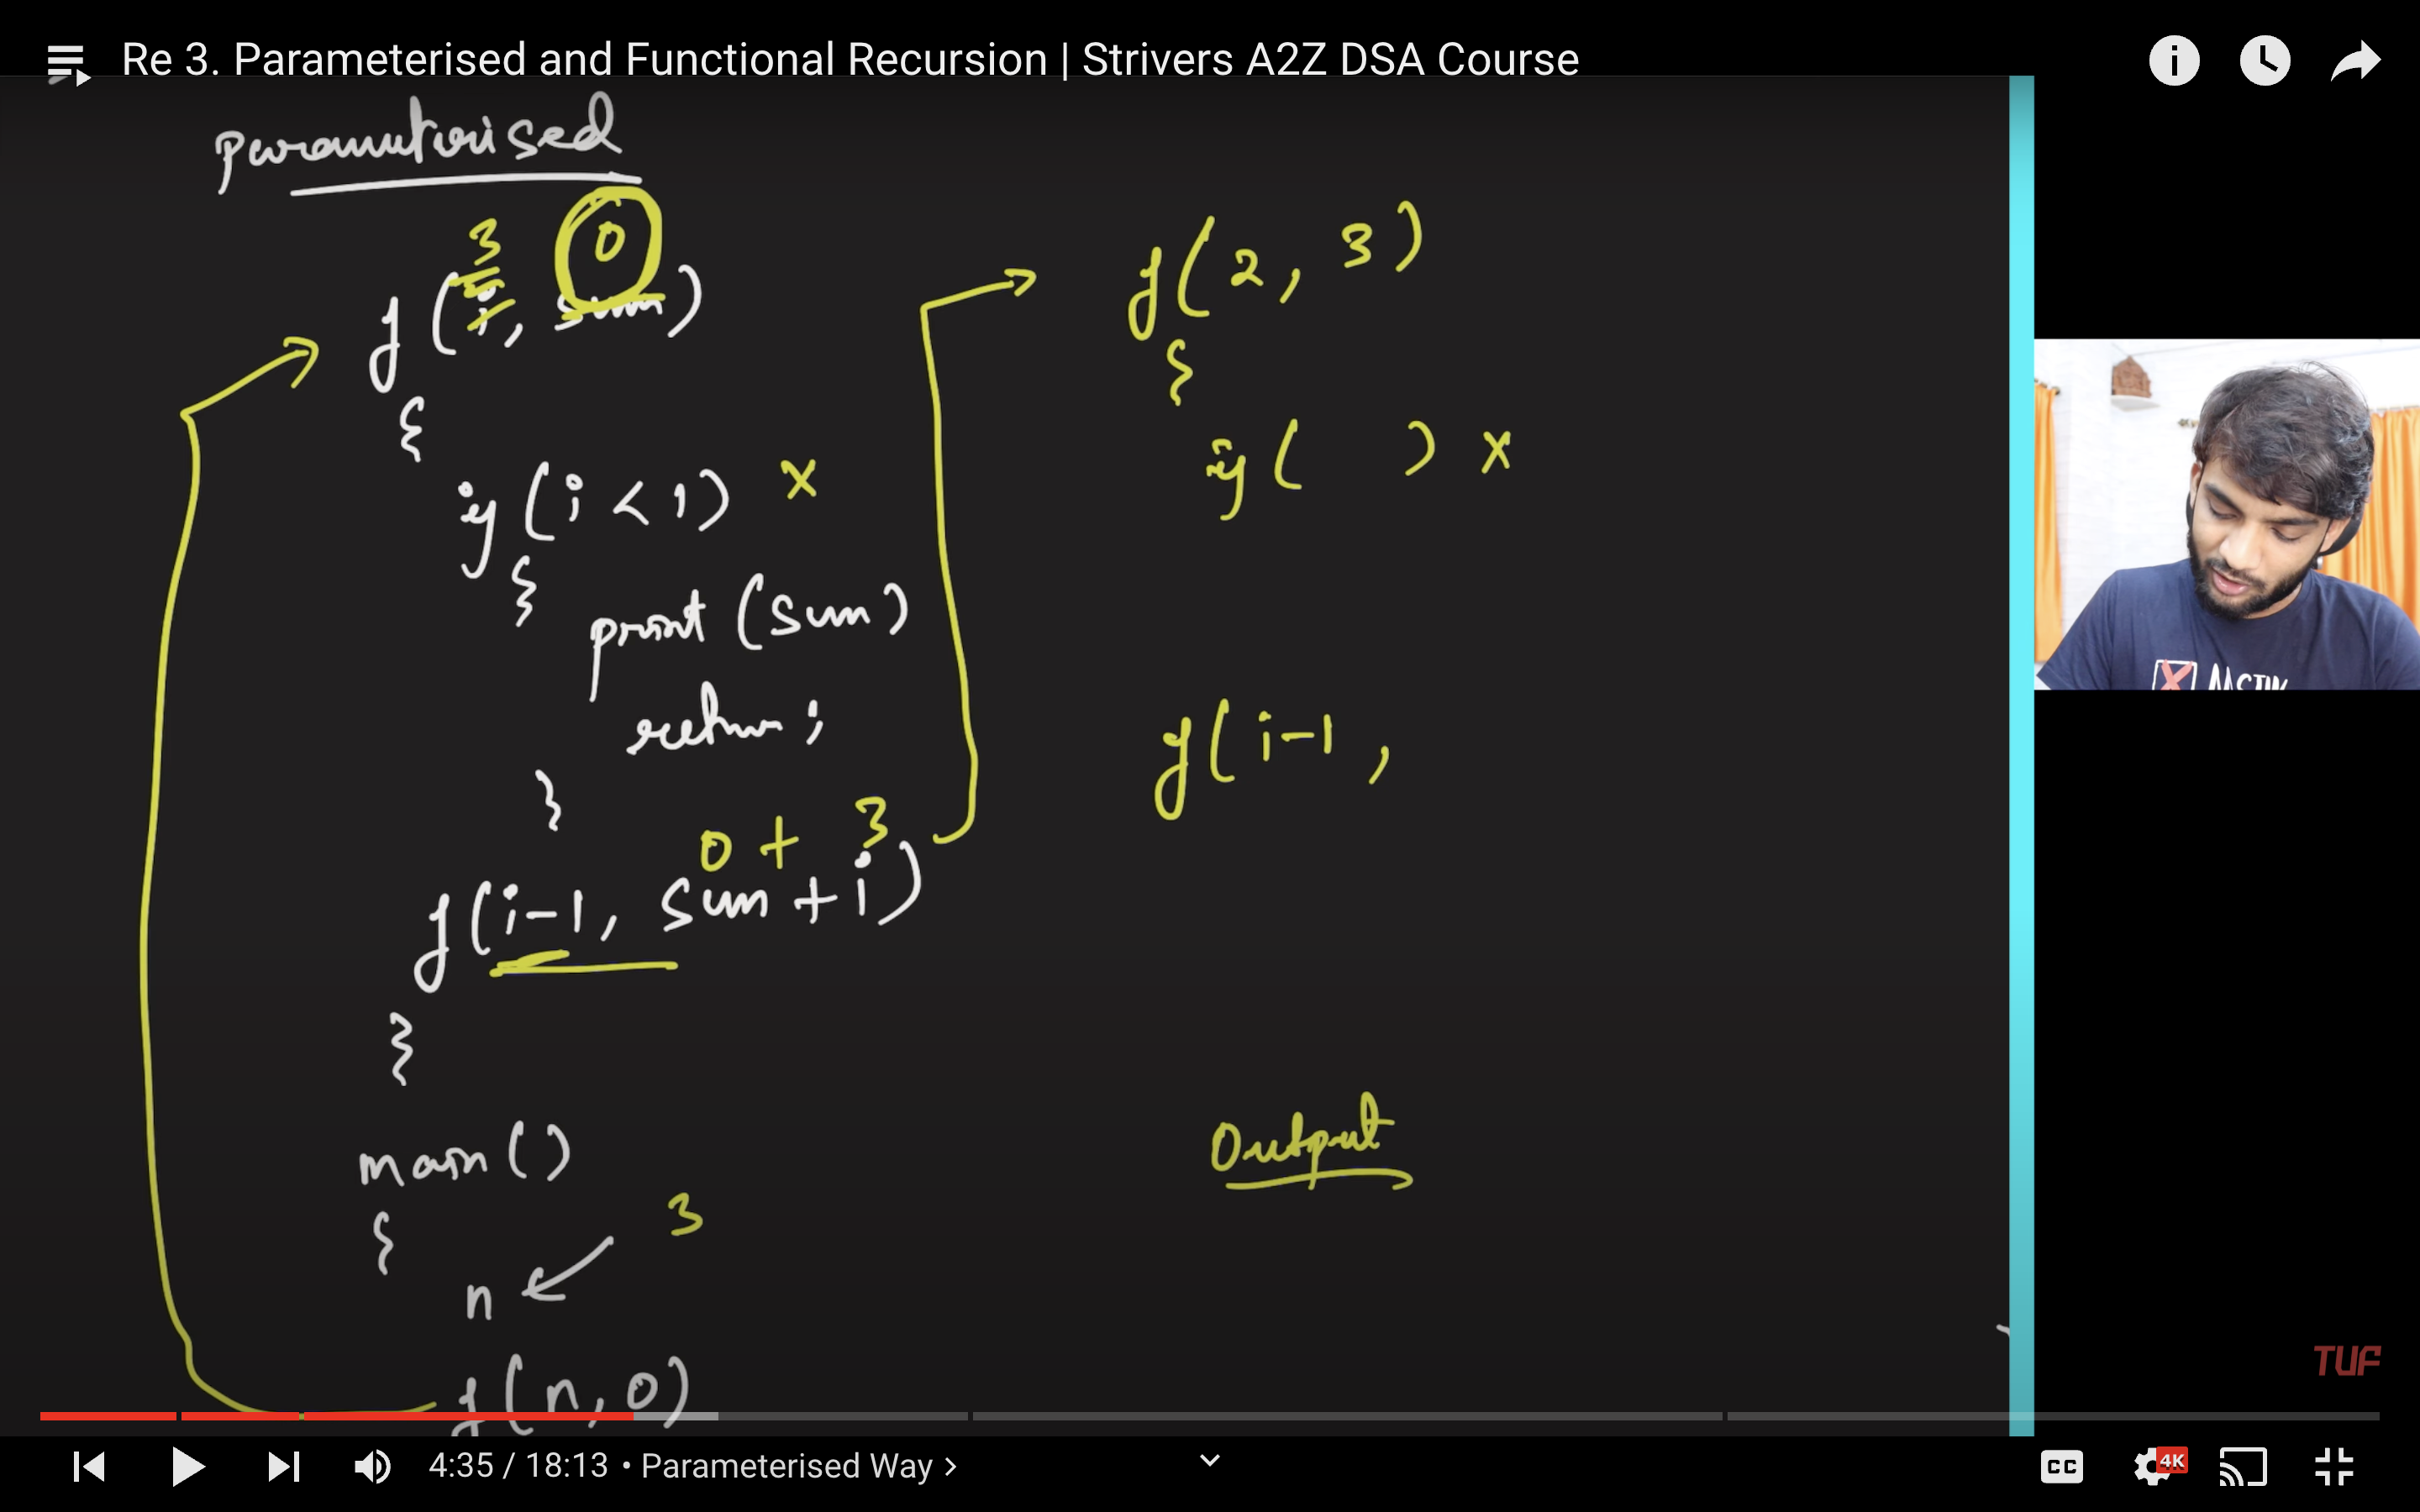 Re 3. Parameterised and Functional Recursion | Strivers A2Z DSA Course
parameterised
3 0
f(i, sum)
{
if (i < 1) x
{
print (sum)
return ;
}
0 + 3
f(i-1, sum + i)
}
main()
{
3
n
f(n, 0)
f(2, 3)
{
if ( ) x
f(i-1,
Output
TUF
4:35 / 18:13 • Parameterised Way
CC
4K